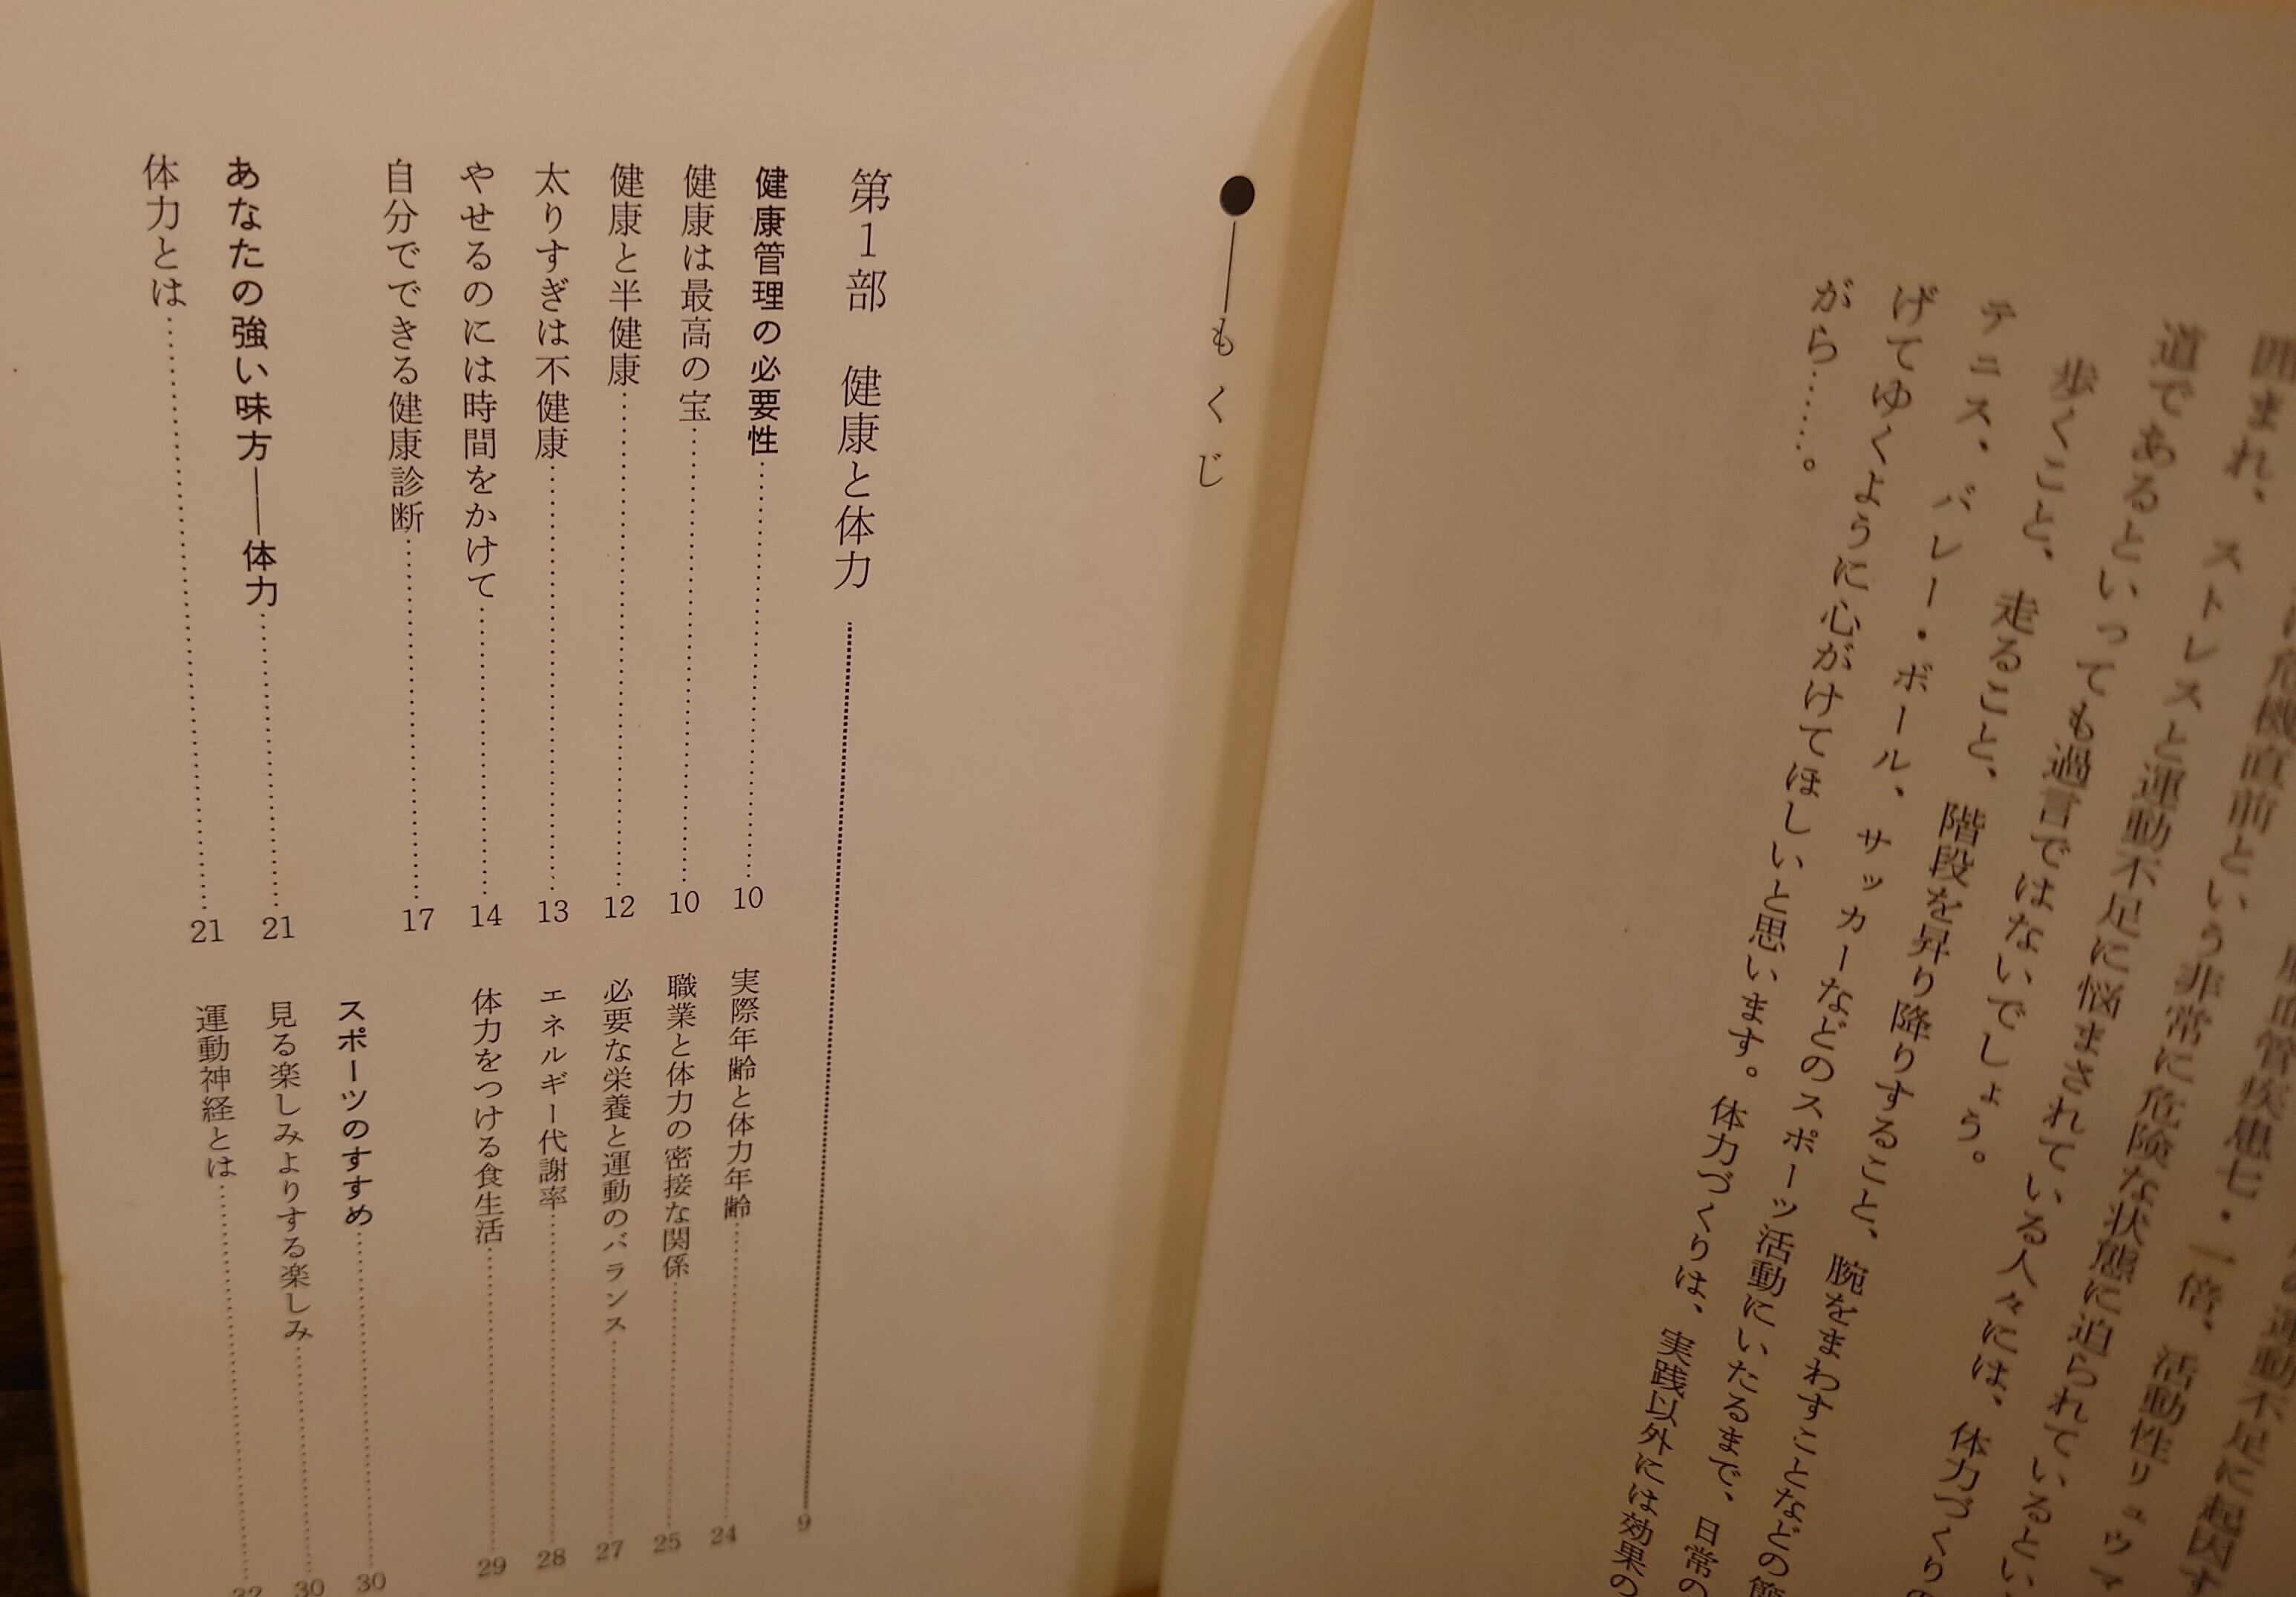 囲まれ、ストレスと運動不足に悩まされている人々には、体力づくりの
道であるといっても過言ではないでしょう。
歩くこと、走ること、階段を昇り降りすること、腕をまわすことなどの簡
テニス、バレー・ボール、サッカーなどのスポーツ活動にいたるまで、日常の
げてゆくように心がけてほしいと思います。体力づくりは、実践以外には効果の
がら……。
●――もくじ
第1部 健康と体力 9
健康管理の必要性 10
健康は最高の宝 10
健康と半健康 12
太りすぎは不健康 13
やせるのには時間をかけて 14
自分でできる健康診断 17
あなたの強い味方――体力 21
体力とは 21
実際年齢と体力年齢 24
職業と体力の密接な関係 25
必要な栄養と運動のバランス 27
エネルギー代謝率 28
体力をつける食生活 29
スポーツのすすめ 30
見る楽しみよりする楽しみ 30
運動神経とは